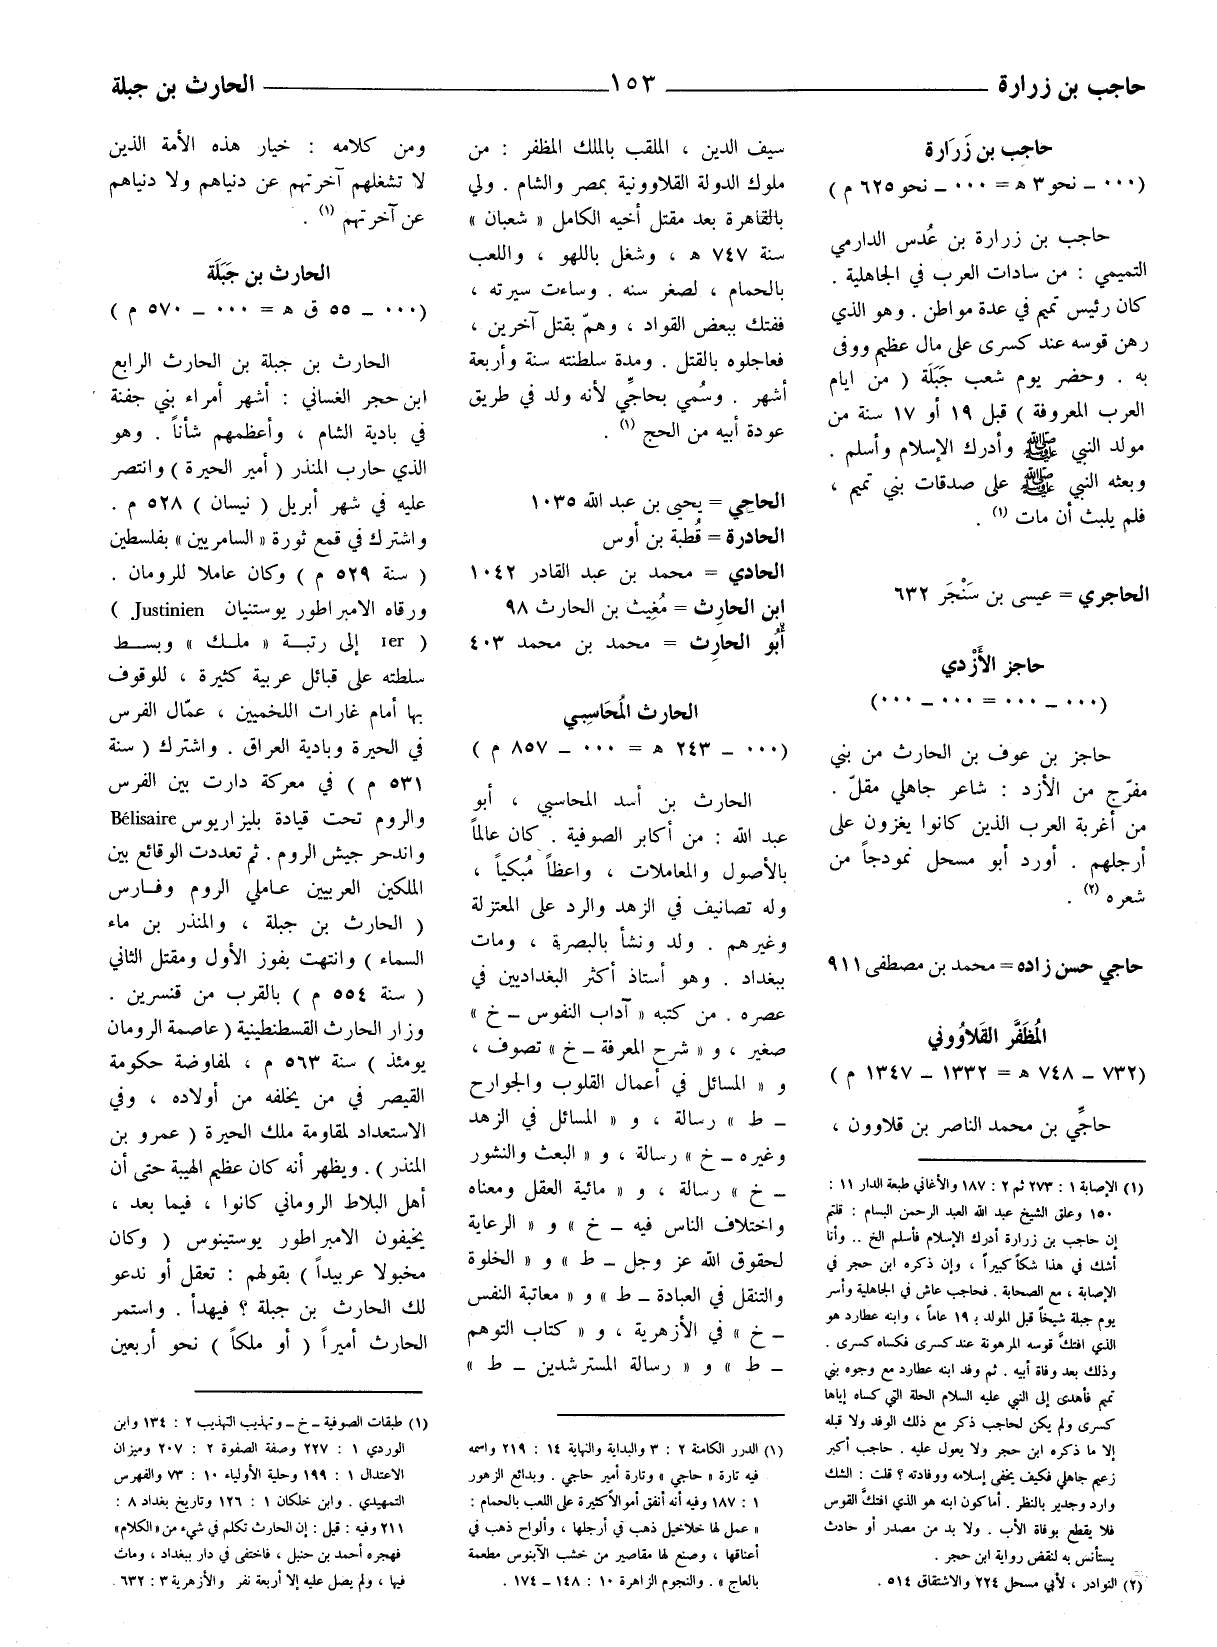 حاجب بن زرارة ١٥٣ الحارث بن جبلة
حاجب بن زَرَارة
(٠٠٠ ـ نحو ٣ ه = ٠٠٠ ـ نحو ٦٢٥ م)
حاجب بن زرارة بن عُدس الدارمي
التميمي : من سادات العرب في الجاهلية .
كان رئيس تميم في عدة مواطن . وهو الذي
رهن قوسه عند كسرى على مال عظيم ووفى
به . وحضر يوم شعب جَبَلَة ( من ايام
العرب المعروفة ) قبل ١٩ أو ١٧ سنة من
مولد النبي ﷺ وأدرك الإسلام وأسلم .
وبعثه النبي ﷺ على صدقات بني تميم ،
فلم يلبث أن مات (١) .
الحاجري = عيسى بن سَنْجَر ٦٣٢
حاجز الأَزْدي
(٠٠٠ ـ ٠٠٠ = ٠٠٠ ـ ٠٠٠)
حاجز بن عوف بن الحارث من بني
مفرّج من الأزد : شاعر جاهلي مقلّ .
من أغربة العرب الذين كانوا يغزون على
أرجلهم . أورد أبو مسحل نموذجاً من
شعره (٢) .
حاجي حسن زاده = محمد بن مصطفى ٩١١
المُظَفَّر القَلاوُوني
(٧٣٢ ـ ٧٤٨ ه = ١٣٣٢ ـ ١٣٤٧ م )
حاجِّي بن محمد الناصر بن قلاوون ،
(١) الإصابة ١ : ٢٧٣ ثم ٢ : ١٨٧ والأغاني طبعة الدار ١١ :
١٥٠ وعلق الشيخ عبد الله العبد الرحمن البسام : قلتم
إن حاجب بن زرارة أدرك الإسلام فأسلم الخ .. وأنا
أشك في هذا شكاً كبيراً ، وإن ذكره ابن حجر في
الإصابة ، مع الصحابة . فحاجب عاش في الجاهلية وأسر
يوم جبلة شيخاً قبل المولد بـ ١٩ عاماً ، وابنه عطارد هو
الذي افتكَّ قوسه المرهونة عند كسرى فكساه كسرى .
وذلك بعد وفاة أبيه . ثم وفد ابنه عطارد مع وجوه بني
تميم فأهدى إلى النبي عليه السلام الحلة التي كساه إياها
كسرى ولم يكن لحاجب ذكر مع ذلك الوفد ولا قبله
إلا ما ذكره ابن حجر ولا يعول عليه . حاجب أكبر
زعيم جاهلي فكيف يخفى إسلامه ووفادته ؟ قلت : الشك
وارد وجدير بالنظر . أما كون ابنه هو الذي افتكَّ القوس
فلا يقطع بوفاة الأب . ولا بد من مصدر أو حادث
يستأنس به لنقض رواية ابن حجر .
(٢) النوادر ، لأبي مسحل ٢٢٤ والاشتقاق ٥١٤ .
سيف الدين ، الملقب بالملك المظفر : من
ملوك الدولة القلاوونية بمصر والشام . ولي
بالقاهرة بعد مقتل أخيه الكامل « شعبان »
سنة ٧٤٧ ه ، وشغل باللهو ، واللعب
بالحمام ، لصغر سنه . وساءت سيرته ،
ففتك ببعض القواد ، وهمّ بقتل آخرين ،
فعاجلوه بالقتل . ومدة سلطنته سنة وأربعة
أشهر . وسُمي بحاجِّي لأنه ولد في طريق
عودة أبيه من الحج (١) .
الحاجِي = يحيى بن عبد الله ١٠٣٥
الحادرة = قُطبة بن أوس
الحادي = محمد بن عبد القادر ١٠٤٢
ابن الحارِث = مُغِيث بن الحارث ٩٨
أَبُو الحارِث = محمد بن محمد ٤٠٣
الحارث المُحَاسِبي
(٠٠٠ ـ ٢٤٣ ه = ٠٠٠ ـ ٨٥٧ م )
الحارث بن أسد المحاسبي ، أبو
عبد الله : من أكابر الصوفية . كان عالماً
بالأصول والمعاملات ، واعظاً مُبكياً ،
وله تصانيف في الزهد والرد على المعتزلة
وغيرهم . ولد ونشأ بالبصرة ، ومات
ببغداد . وهو أستاذ أكثر البغداديين في
عصره . من كتبه « آداب النفوس ـ خ »
صغير ، و « شرح المعرفة ـ خ » تصوف ،
و « المسائل في أعمال القلوب والجوارح
ـ ط » رسالة ، و « المسائل في الزهد
وغيره ـ خ » رسالة ، و « البعث والنشور
ـ خ » رسالة ، و « مائية العقل ومعناه
واختلاف الناس فيه ـ خ » و « الرعاية
لحقوق الله عز وجل ـ ط » و « الخلوة
والتنقل في العبادة ـ ط » و « معاتبة النفس
ـ خ » في الأزهرية ، و « كتاب التوهم
ـ ط » و « رسالة المسترشدين ـ ط »
(١) الدرر الكامنة ٢ : ٣ والبداية والنهاية ١٤ : ٢١٩ واسمه
فيه تارة « حاجي » وتارة أمير حاجي . وبدائع الزهور
١ : ١٨٧ وفيه أنه أنفق أموالاً كثيرة على اللعب بالحمام :
« عمل لها خلاخيل ذهب في أرجلها ، وألواح ذهب في
أعناقها ، وصنع لها مقاصير من خشب الآبنوس مطعمة
بالعاج » . والنجوم الزاهرة ١٠ : ١٤٨ ـ ١٧٤ .
ومن كلامه : خيار هذه الأمة الذين
لا تشغلهم آخرتهم عن دنياهم ولا دنياهم
عن آخرتهم (١) .
الحارث بن جَبَلَة
(٠٠٠ ـ ٥٥ ق ه = ٠٠٠ ـ ٥٧٠ م )
الحارث بن جبلة بن الحارث الرابع
ابن حجر الغساني : أشهر أمراء بني جفنة
في بادية الشام ، وأعظمهم شأناً . وهو
الذي حارب المنذر ( أمير الحيرة ) وانتصر
عليه في شهر أبريل ( نيسان ) ٥٢٨ م .
واشترك في قمع ثورة « السامريين » بفلسطين
( سنة ٥٢٩ م ) وكان عاملا للرومان .
ورقاه الامبراطور يوستنيان Justinien )
( Ier إلى رتبة « ملك » وبسط
سلطته على قبائل عربية كثيرة ، للوقوف
بها أمام غارات اللخميين ، عمّال الفرس
في الحيرة وبادية العراق . واشترك ( سنة
٥٣١ م ) في معركة دارت بين الفرس
والروم تحت قيادة بليزاريوس Bélisaire
واندحر جيش الروم . ثم تعددت الوقائع بين
الملكين العربيين عاملي الروم وفارس
( الحارث بن جبلة ، والمنذر بن ماء
السماء ) وانتهت بفوز الأول ومقتل الثاني
( سنة ٥٥٤ م ) بالقرب من قنسرين .
وزار الحارث القسطنطينية ( عاصمة الرومان
يومئذ ) سنة ٥٦٣ م ، لمفاوضة حكومة
القيصر في من يخلفه من أولاده ، وفي
الاستعداد لمقاومة ملك الحيرة ( عمرو بن
المنذر ) . ويظهر أنه كان عظيم الهيبة حتى أن
أهل البلاط الروماني كانوا ، فيما بعد ،
يخيفون الامبراطور يوستينوس ( وكان
مخبولا عربيداً ) بقولهم : تعقل أو ندعو
لك الحارث بن جبلة ؟ فيهدأ . واستمر
الحارث أميراً ( أو ملكاً ) نحو أربعين
(١) طبقات الصوفية ـ خ ـ وتهذيب التهذيب ٢ : ١٣٤ وابن
الوردي ١ : ٢٢٧ وصفة الصفوة ٢ : ٢٠٧ وميزان
الاعتدال ١ : ١٩٩ وحلية الأولياء ١٠ : ٧٣ والفهرس
التمهيدي . وابن خلكان ١ : ١٢٦ وتاريخ بغداد ٨ :
٢١١ وفيه : قيل : إن الحارث تكلم في شيء من « الكلام »
فهجره أحمد بن حنبل ، فاختفى في دار ببغداد ، ومات
فيها ، ولم يصل عليه إلا أربعة نفر . والأزهرية ٣ : ٦٣٢ .